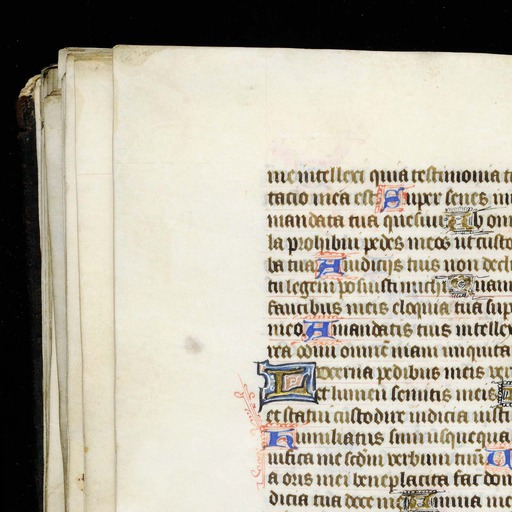 me intellexi quia testimonia t
tacio mea est Super senes m
mandata tua quesiui Ab om
la prohibui pedes meos ut custo
ba tua A iudicijs tuis non decli
tu legem posuisti michi Quam
faucibus meis eloquia tua sup
meo A mandatis tuis intellex
rea odiui omnē uiam iniquita
Lucerna pedibus meis ver
et lumen semitis meis
et statui custodire iudicia iusti
Humiliatus sum usquequa
uifica me scdm verbum tuū U
a oris mei beneplacita fac dom
dicia tua doce me Anima me